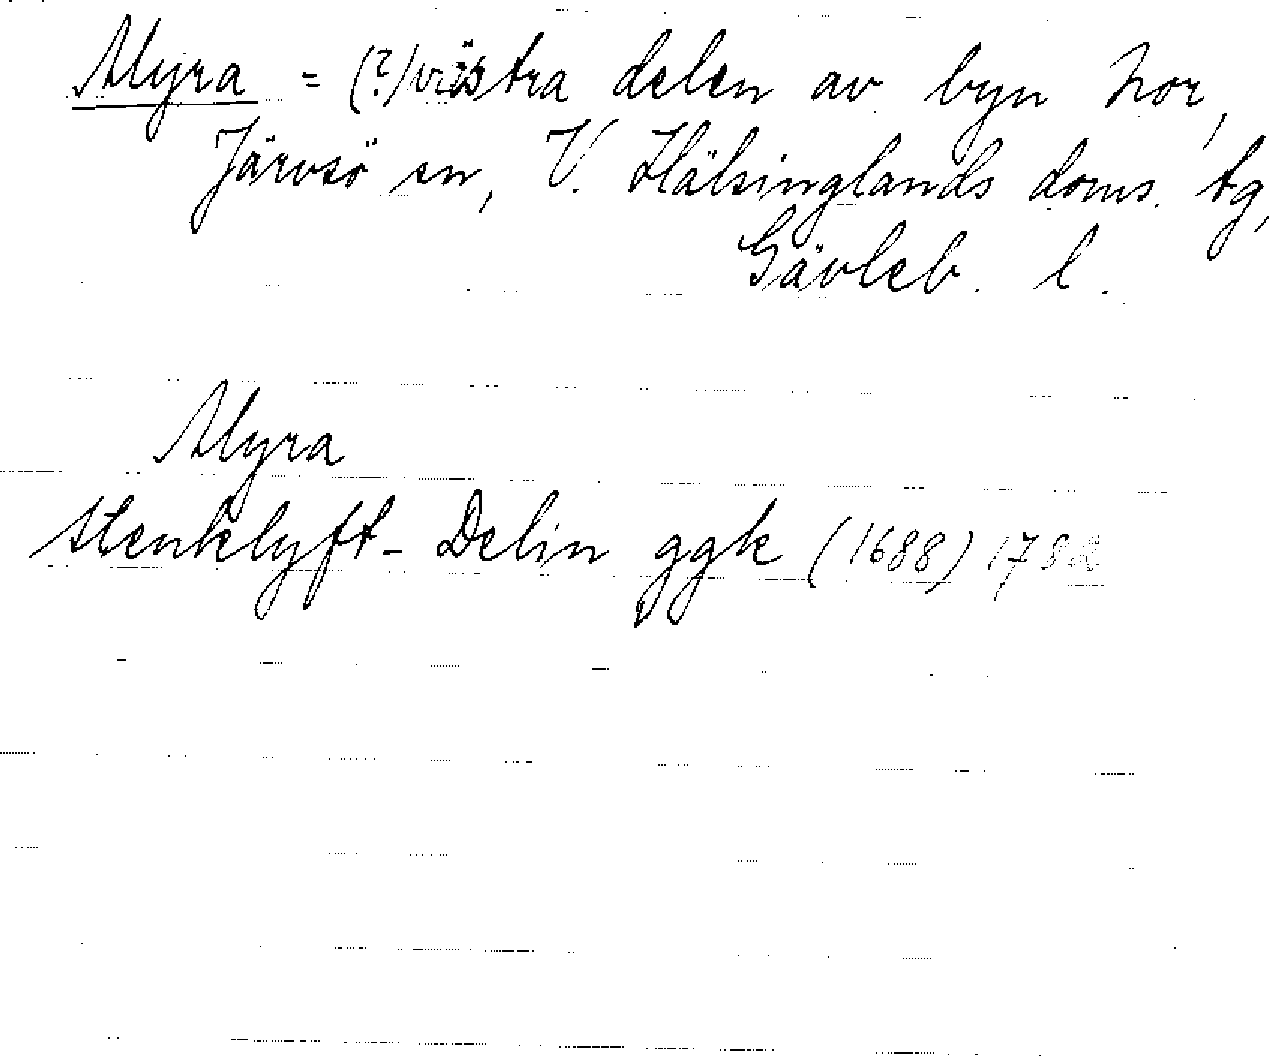 Myra = (?) västra delen av byn Nor,
Järvsö sn, V. Hälsinglands doms. tg,
Gävleb. l.
Myra
Stenklyft- Delin ggk (1688)